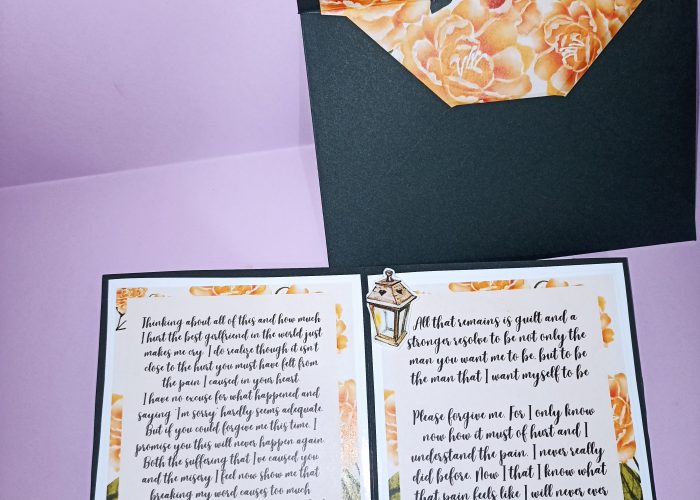 Thinking about all of this and how much
I hurt the best girlfriend in the world just
makes me cry. I do realize though it isn't
close to the hurt you must have felt from
the pain I caused in your heart.
I have no excuse for what happened and
saying 'I'm sorry' hardly seems adequate.
But if you could forgive me this time, I
promise you this will never happen again.
Both the suffering that I've caused you
and the misery I feel now show me that
breaking my word causes too much
All that remains is guilt and a
stronger resolve to be not only the
man you want me to be, but to be
the man that I want myself to be
Please forgive me. For I only know
now how it must of hurt and I
understand the pain. I never really
did before. Now I that I know what
that pain feels like I will never ever